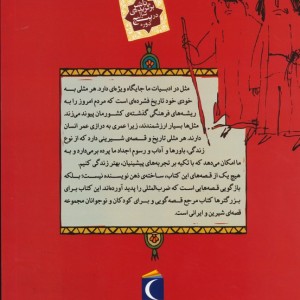 مثل در ادبیات ما جایگاه ویژه‌ای دارد. هر مثلی به
خودی خود تاریخ فشرده‌ای است که مردم امروز را به
ریشه‌های فرهنگی گذشته‌ی کشورمان پیوند می‌زند.
مثل‌ها بسیار ارزشمندند، زیرا عمری به درازی عمر انسان
دارند. هر مثلی تاریخ و قصه‌ی شیرینی دارد که از نوع
زندگی، باورها و آداب و رسوم اجداد ما پرده برمی‌دارد و به
ما امکان می‌دهد که با تکیه بر تجربه‌های پیشینیان، بهتر زندگی کنیم.
هیچ یک از قصه‌های این کتاب، ساخته‌ی ذهن نویسنده نیست؛ بلکه
بازگویی قصه‌هایی است که ضرب‌المثلی را پدید آورده‌اند. این کتاب برای
بزرگترها کتاب مرجع قصه‌گویی و برای کودکان و نوجوانان مجموعه
قصه‌ای شیرین و ایرانی است.